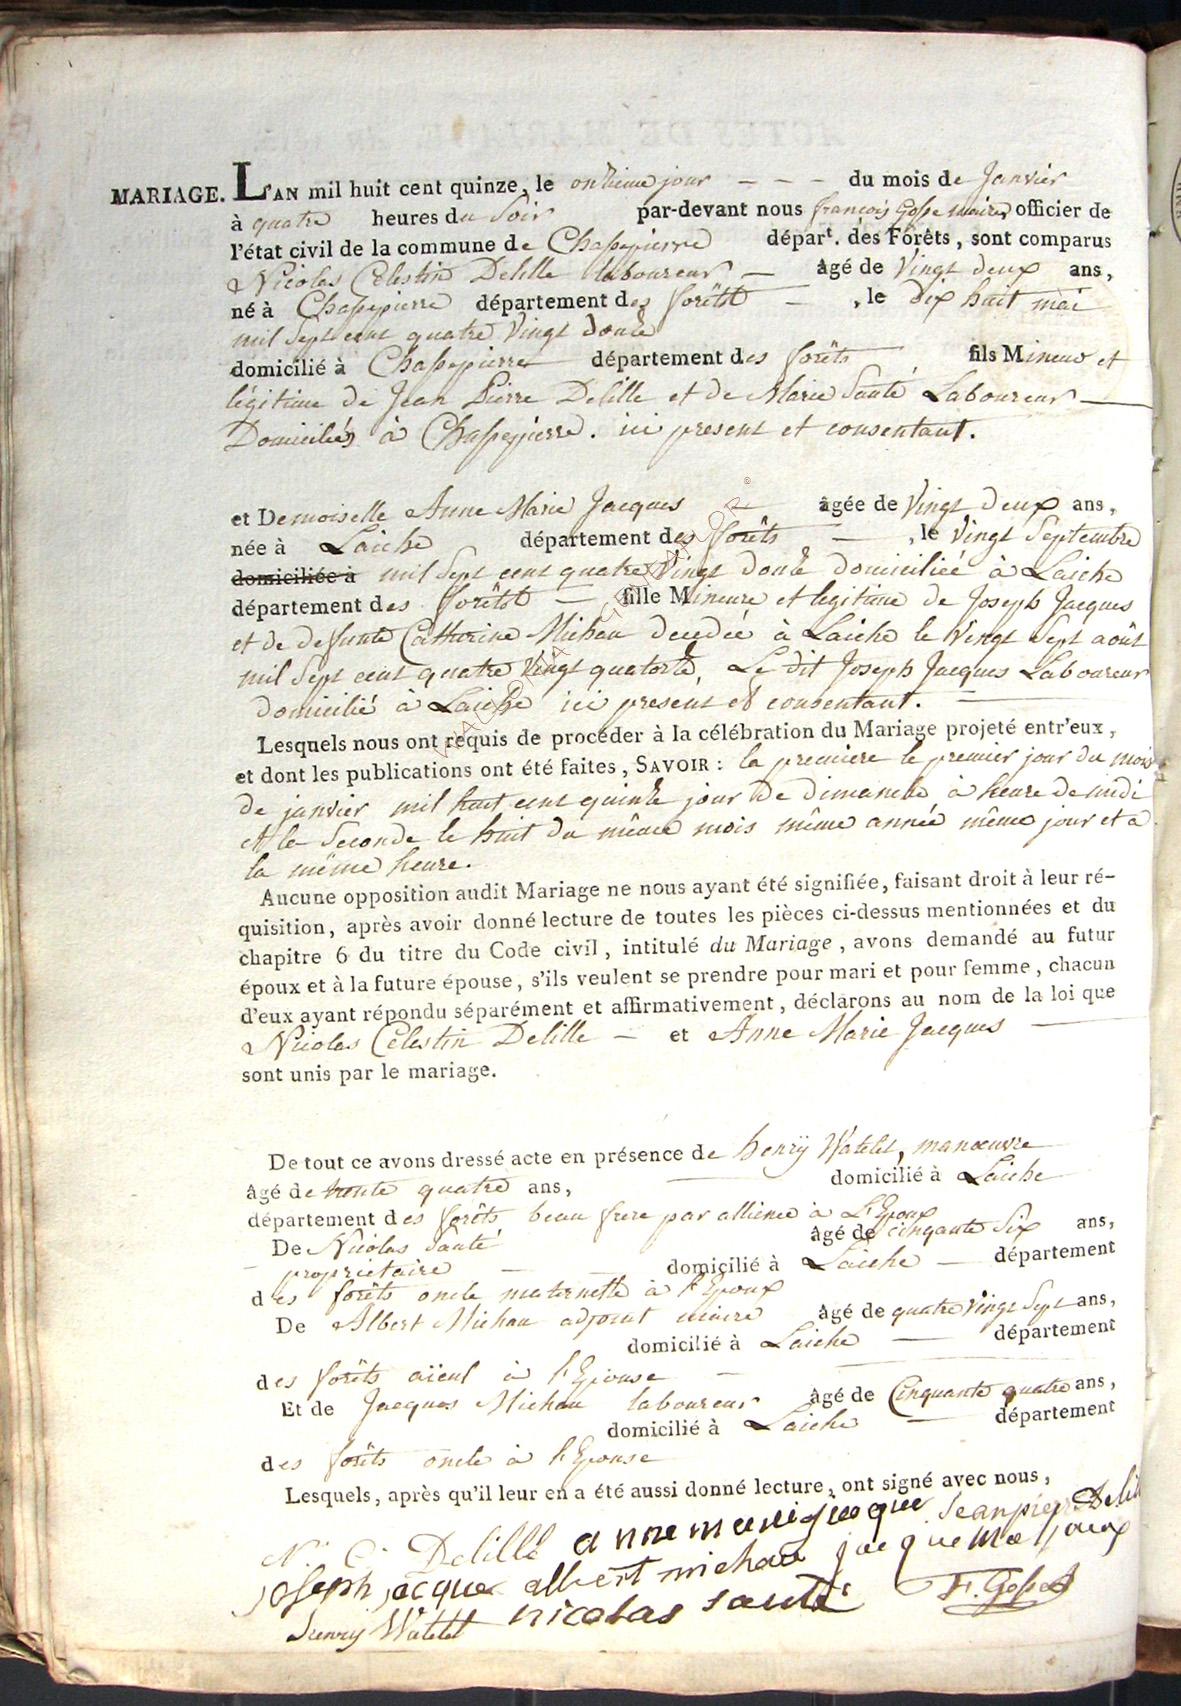 MARIAGE. L'AN mil huit cent quinze, le onzieme jour - - - du mois de Janvier
à quatre heures du Soir par-devant nous françois Gosse maire, officier de
l'état civil de la commune de Chassepierre départ. des Forêts, sont comparus
Nicolas Célestin Delille laboureur - âgé de Vingt deux ans,
né à Chassepierre département des forêts - , le dix huit mai
mil Sept cent quatre Vingt douze
domicilié à Chassepierre département des forêts fils Mineur et
légitime de Jean Pierre Delille et de Marie Santé Laboureur
Domiciliés à Chassepierre. ici present et consentant.
et Demoiselle Anne Marie Jacques - âgée de Vingt deux ans,
née à Laiche département des forêts - , le Vingt Septembre
domiciliée à mil Sept cent quatre Vingt douze domiciliée à Laiche
département des forêts - fille Mineure et legitime de Joseph Jacques
et de defunte Catherine Michau decedée à Laiche le Vingt Sept août
mil Sept cent quatre Vingt quatorze, Le dit Joseph Jacques Laboureur
domicilié à Laiche ici present et consentant. -
Lesquels nous ont requis de procéder à la célébration du Mariage projeté entr'eux,
et dont les publications ont été faites, SAVOIR : la premiere le premier jour du mois
de janvier mil huit cent quinze jour de dimanche à heure de midi
et le Seconde le huit du même mois même année même jour et à
la même heure.
Aucune opposition audit Mariage ne nous ayant été signifiée, faisant droit à leur ré-
quisition, après avoir donné lecture de toutes les pièces ci-dessus mentionnées et du
chapitre 6 du titre du Code civil, intitulé du Mariage, avons demandé au futur
époux et à la future épouse, s'ils veulent se prendre pour mari et pour femme, chacun
d'eux ayant répondu séparément et affirmativement, déclarons au nom de la loi que
Nicolas Célestin Delille - et Anne Marie Jacques -
sont unis par le mariage.
De tout ce avons dressé acte en présence de henry Watelet, manœuvre
âgé de trente quatre ans, - domicilié à Laiche
département des forêts beau frere par allience à L'Epoux
De Nicolas Santé âgé de cinquante Six ans,
- propriétaire - - domicilié à Laiche - département
des forêts oncle maternelle à l'Epoux
De Albert Michau adjoint maire âgé de quatre Vingt Sept ans,
domicilié à Laiche - département
des forêts aïeul à l'Epouse -
Et de Jacques Michau laboureur âgé de Cinquante quatre ans,
domicilié à Laiche - département
des forêts oncle à l'Epouse
Lesquels, après qu'il leur en a été aussi donné lecture, ont signé avec nous,
N. C. Delille anne marie Jean pierre Delille
joseph jacque albert michau
henry Watelet nicolas santé F. Gosse